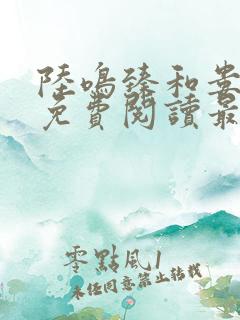 陸鳴臻和婁
免費閱讀最
零點風1
未經同意禁止轉載